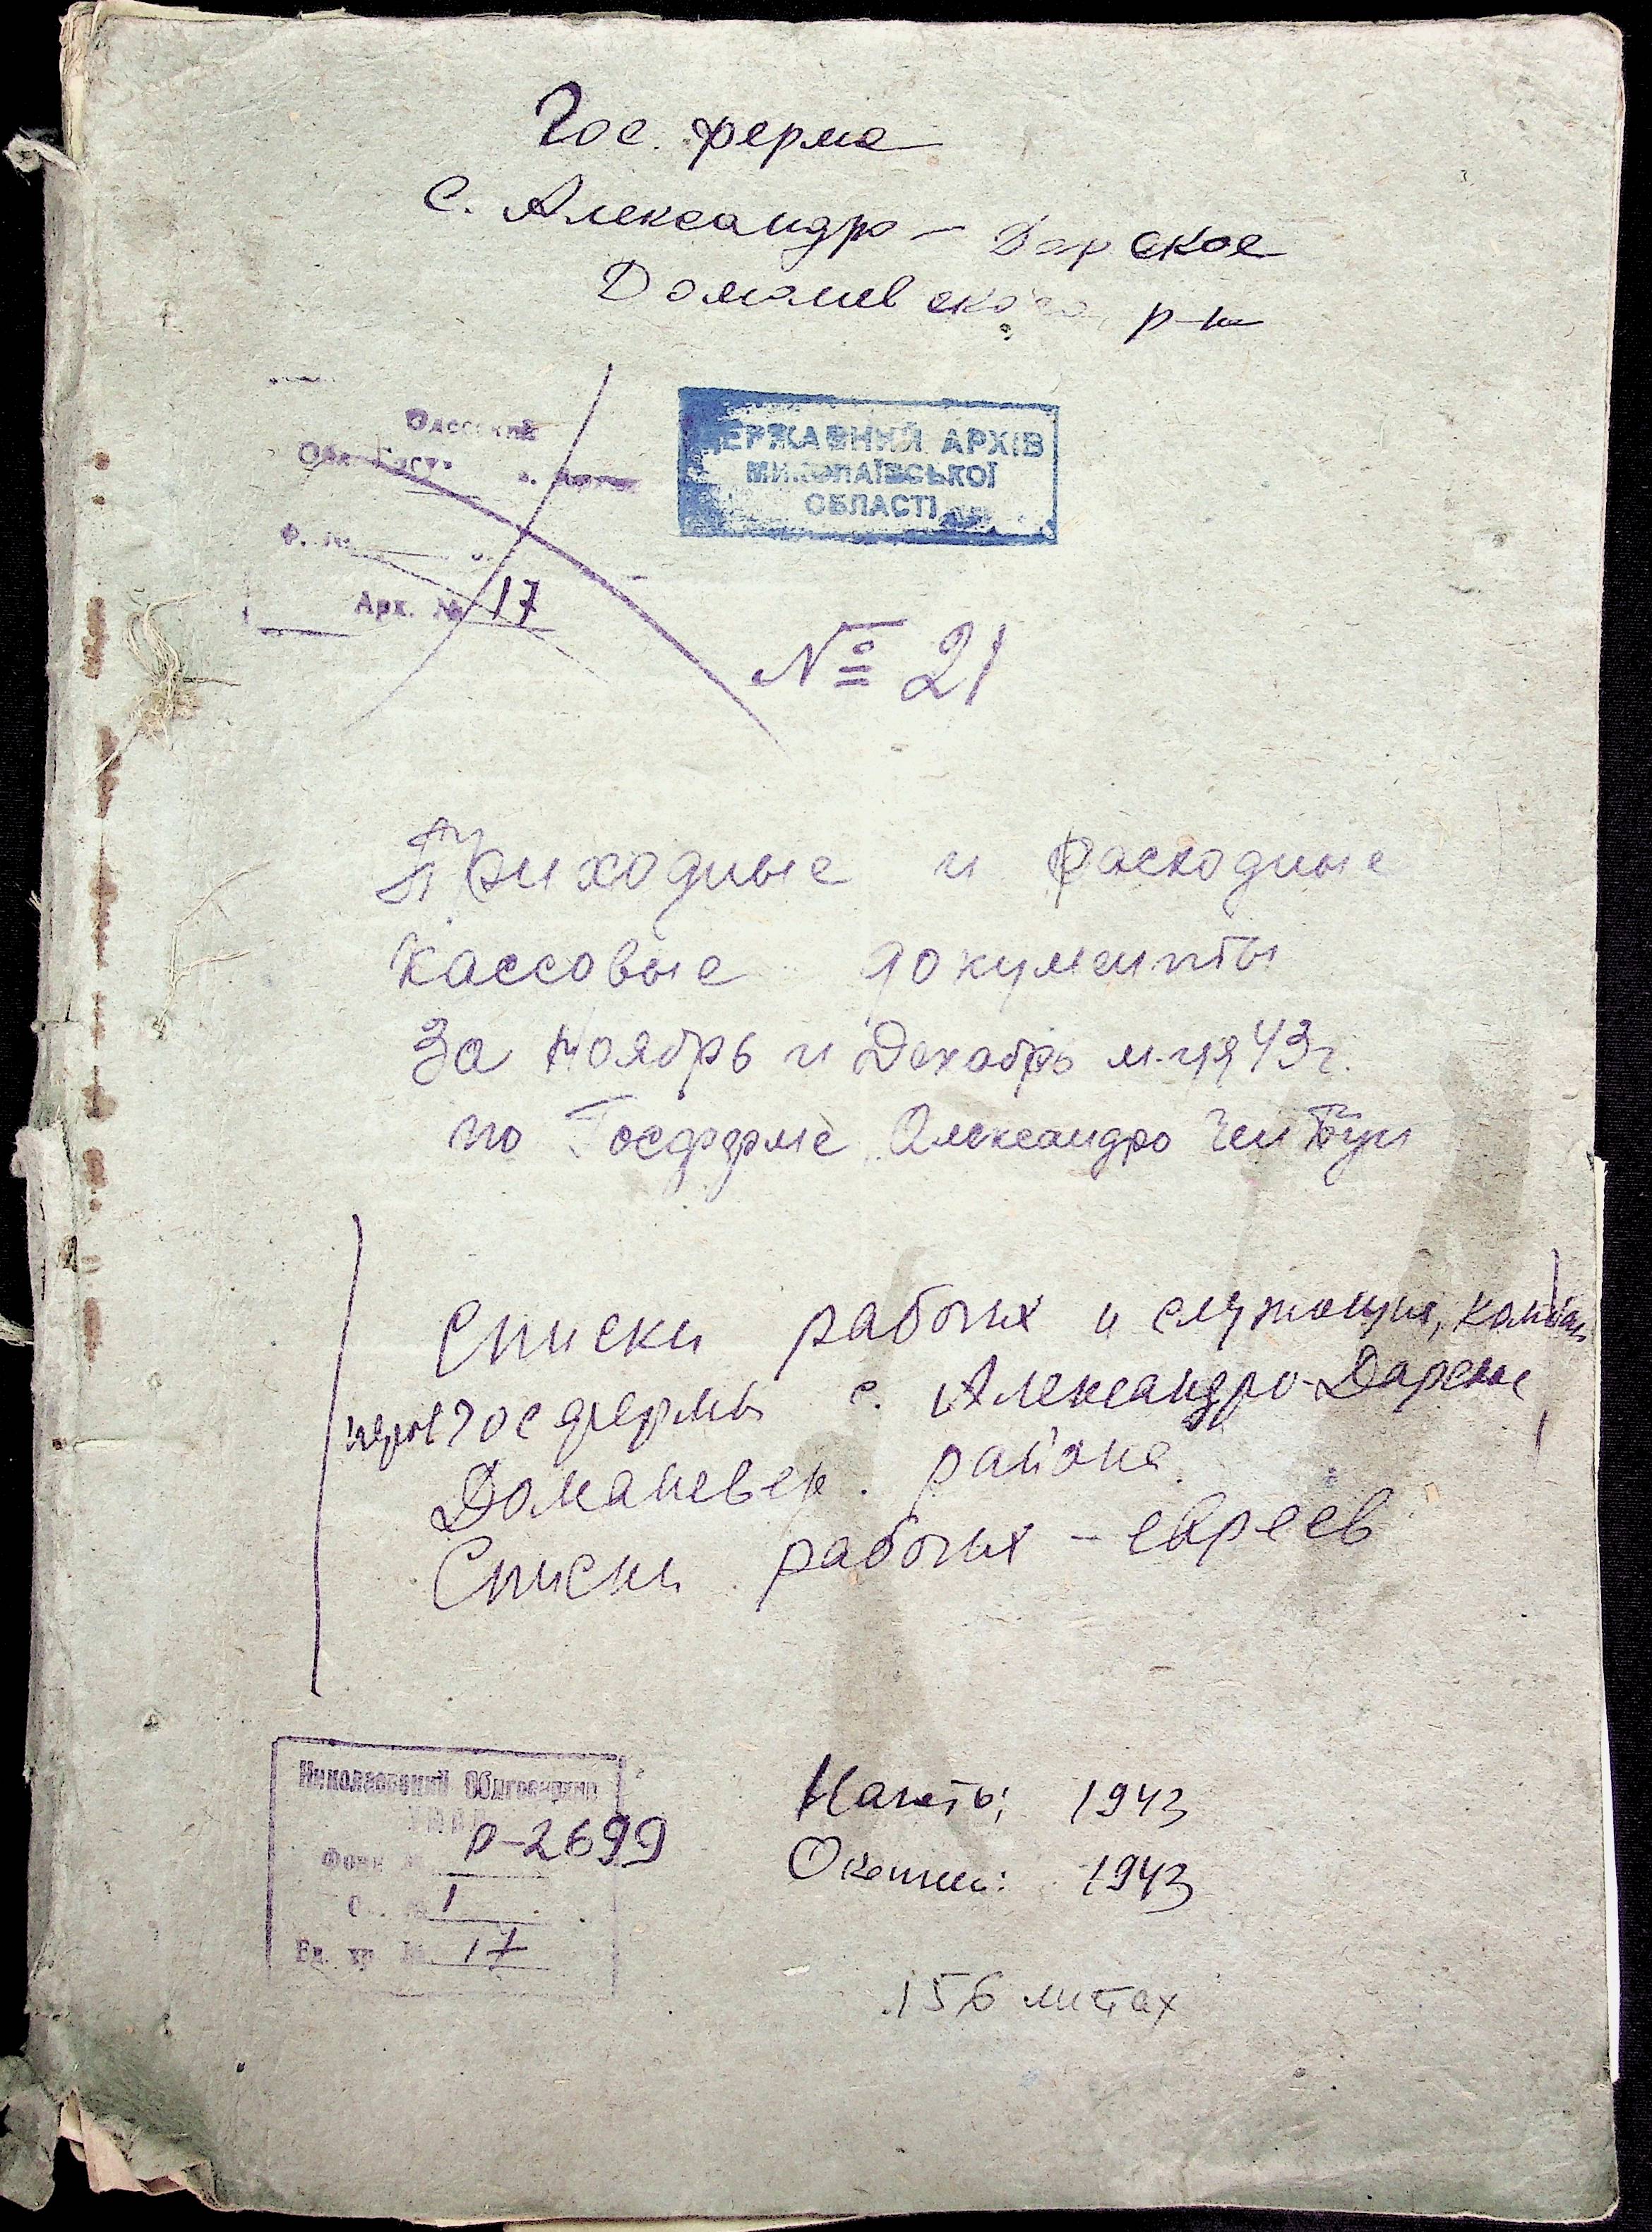 Гос. ферма
с. Александро-Дарское
Доманевского р-на
Одесский
Арх. № 17
ДЕРЖАВНИЙ АРХІВ
МИКОЛАЇВСЬКОЇ
ОБЛАСТІ
№ 21
Приходные и Расходные
Кассовые документы
За Ноябрь и Декабрь м-ця 43 г.
по Госферме Александро
Списки рабочих и служащих,
госфермы с. Александро-Дарское
Доманевск. района
Списки рабочих - евреев
Николаевский Облгосархив
Фонд № Р-2699
Оп. № 1
Ед. хр. № 17
Начато: 1943
Окончен: 1943
156 листах